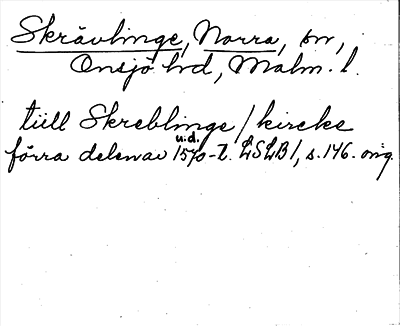 Skrävlinge, Norra, sn,
Onsjö hd, Malm. l.
tiill Skreblinge / kircke
u.d.
förra delen av 1570-t. LSLB 1, s. 146. orig.